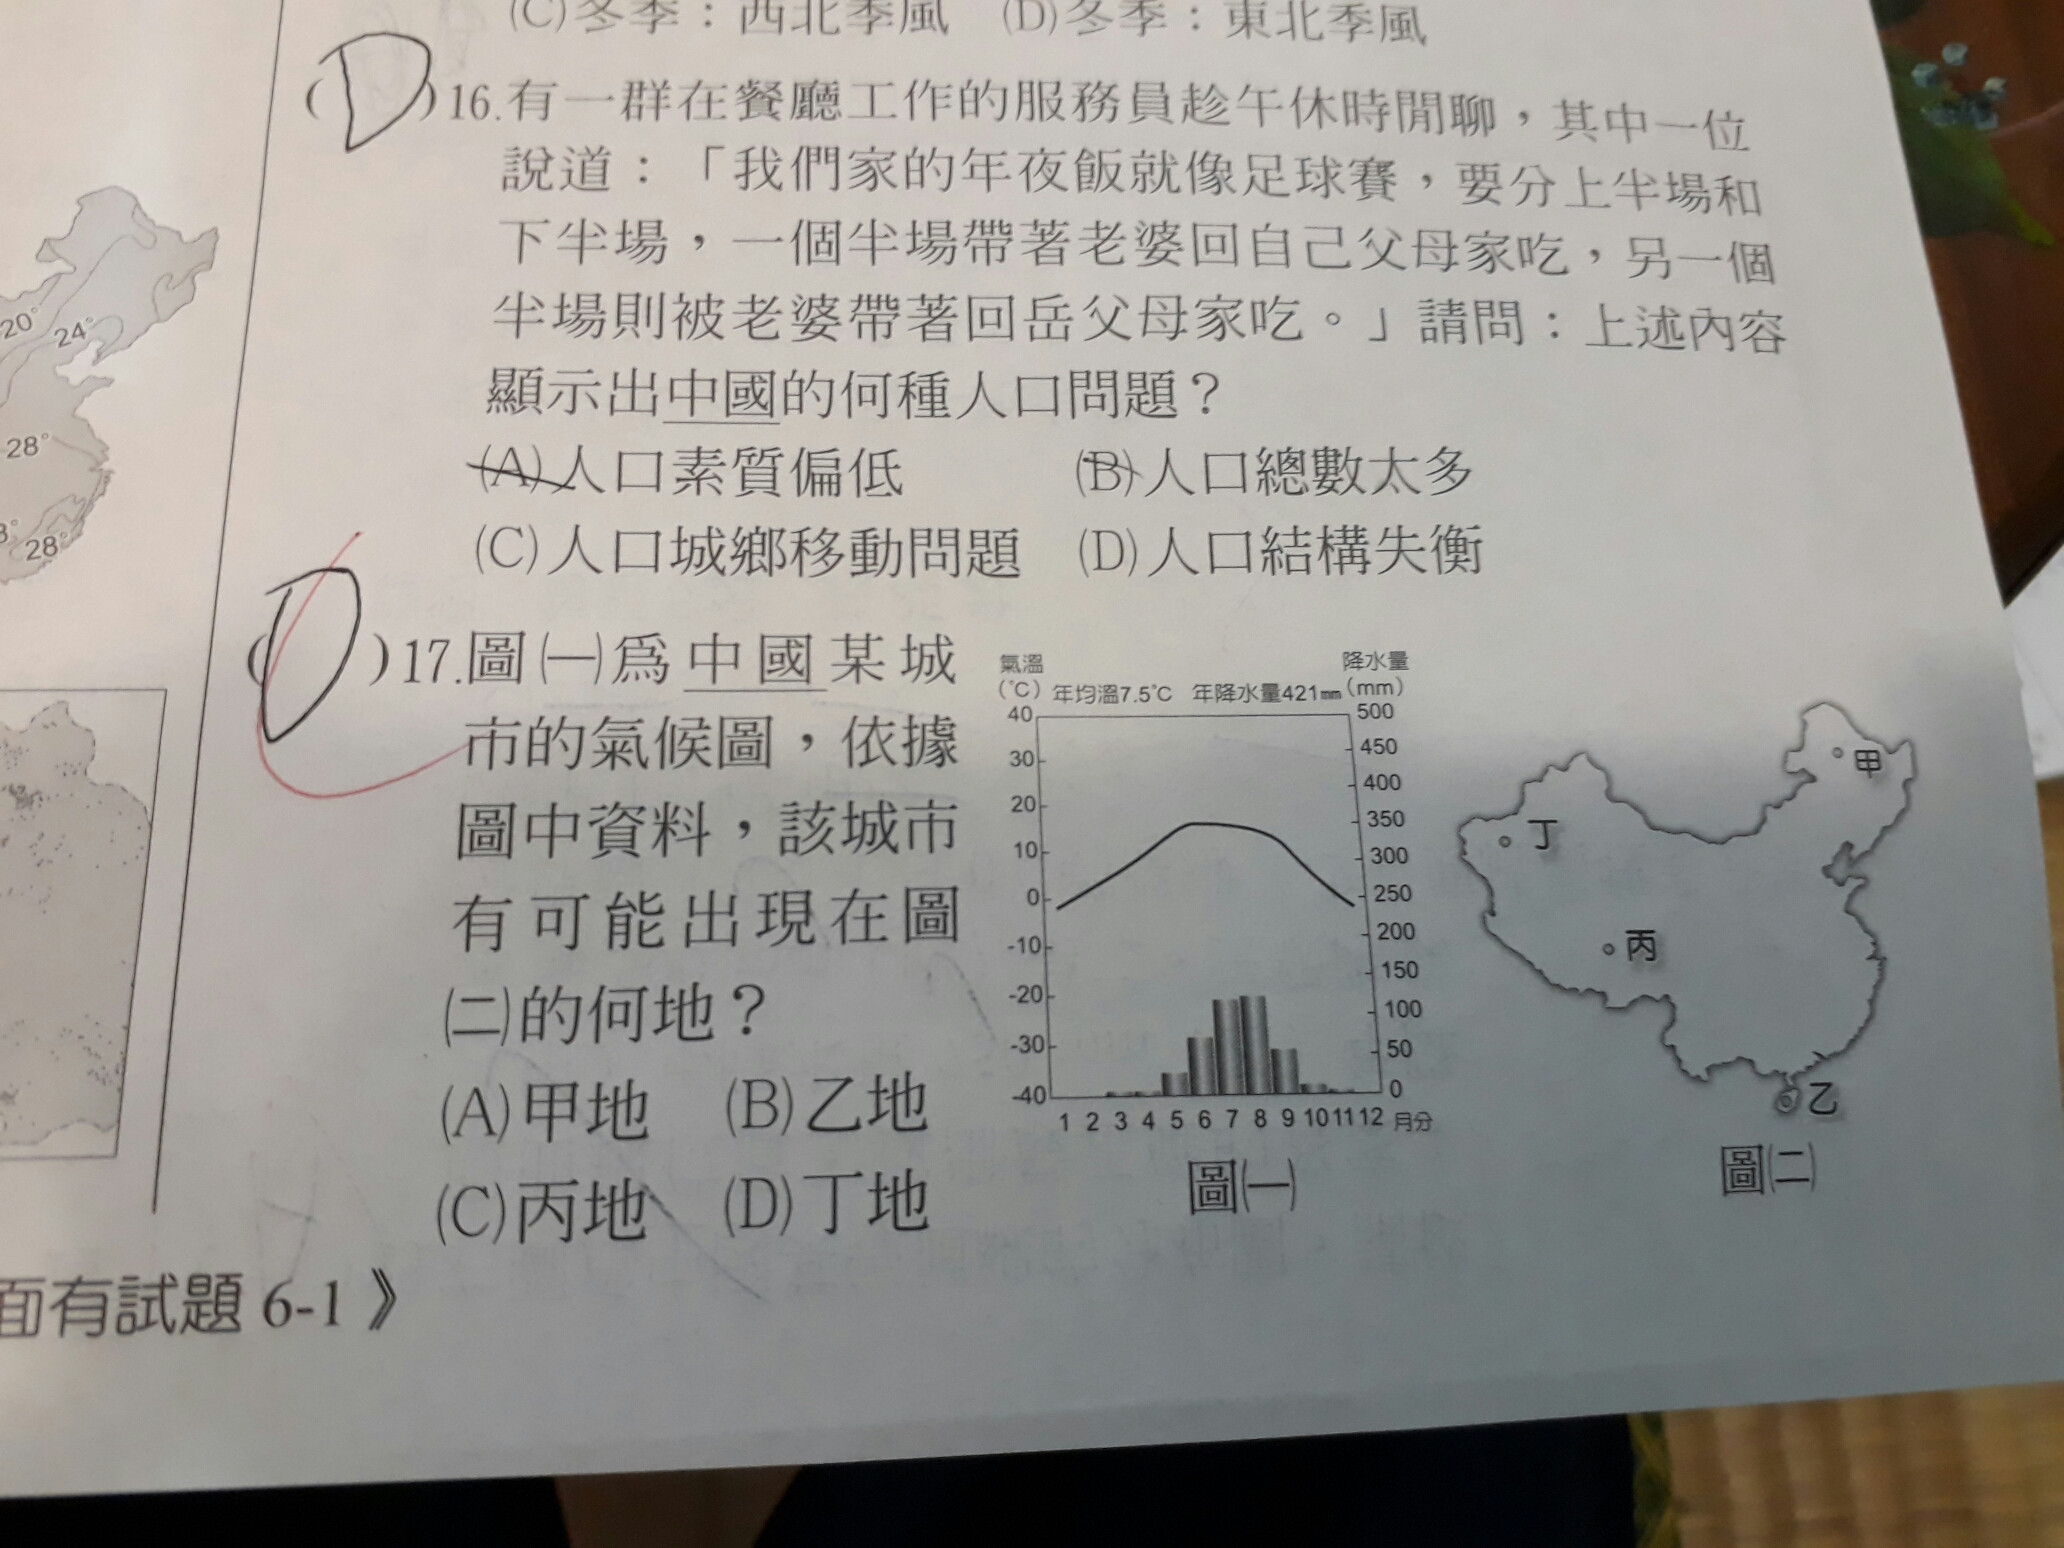 (C)冬季：西北季風　(D)冬季：東北季風
( D )16.有一群在餐廳工作的服務員趁午休時閒聊，其中一位
說道：「我們家的年夜飯就像足球賽，要分上半場和
下半場，一個半場帶著老婆回自己父母家吃，另一個
半場則被老婆帶著回岳父母家吃。」請問：上述內容
顯示出中國的何種人口問題？
(A)人口素質偏低　(B)人口總數太多
(C)人口城鄉移動問題　(D)人口結構失衡
( D )17.圖㈠為中國某城
市的氣候圖，依據
圖中資料，該城市
有可能出現在圖
㈡的何地？
(A)甲地　(B)乙地
(C)丙地　(D)丁地
氣溫
(℃)
年均溫7.5℃　年降水量421mm
降水量
(mm)
40
30
20
10
0
-10
-20
-30
-40
500
450
400
350
300
250
200
150
100
50
0
1 2 3 4 5 6 7 8 9 10 11 12 月分
圖㈠
甲
丁
丙
乙
圖㈡
20°
24°
28°
28°
面有試題 6-1 》